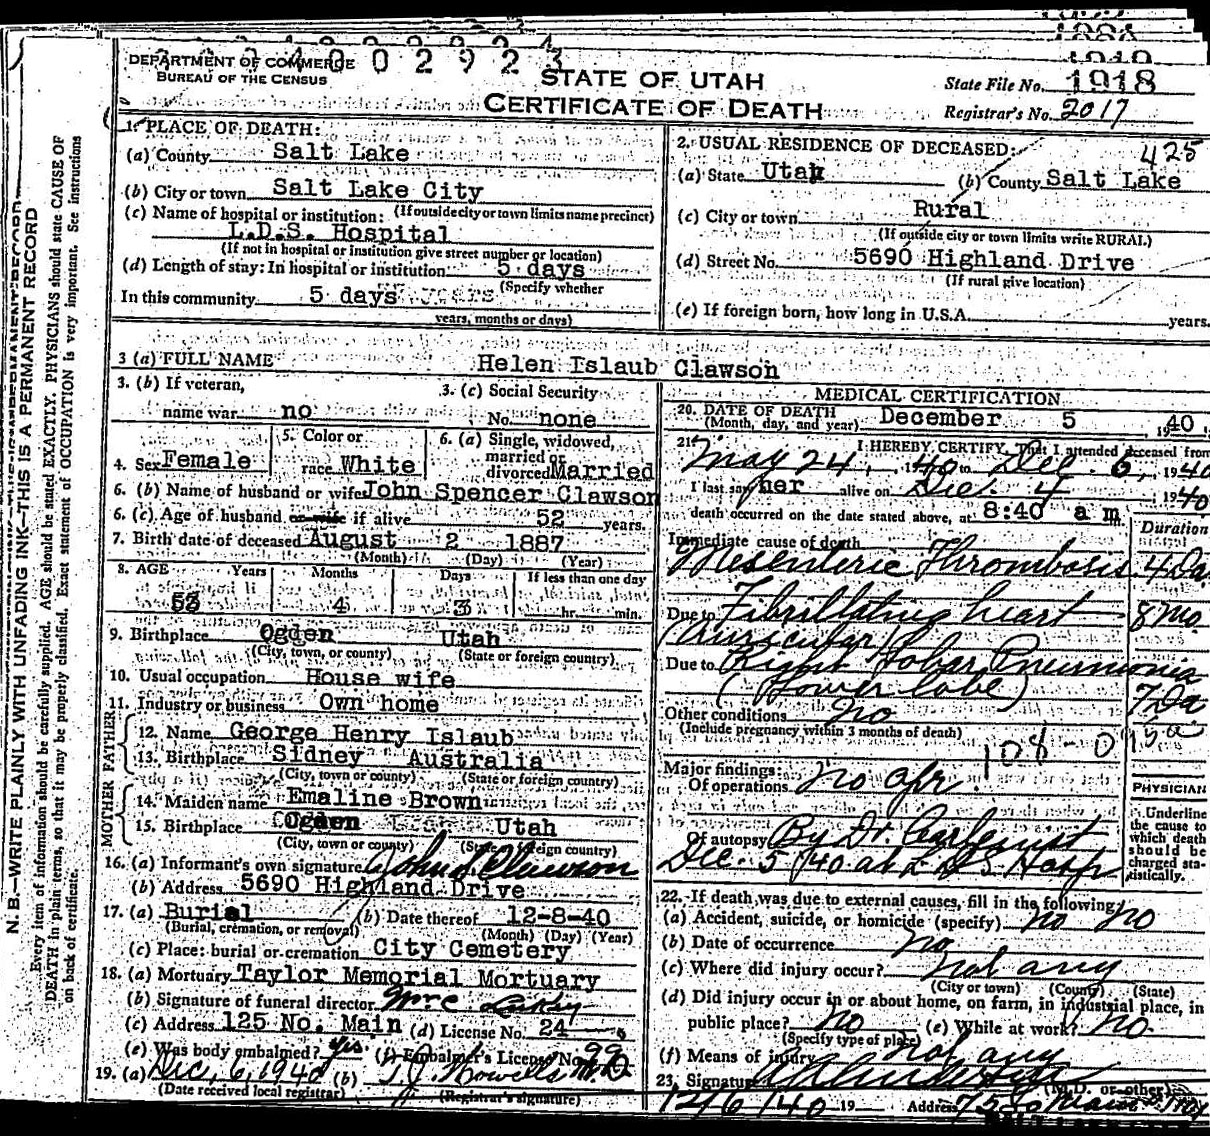 DEPARTMENT OF COMMERCE
BUREAU OF THE CENSUS
STATE OF UTAH
CERTIFICATE OF DEATH
State File No. 1918
Registrar's No. 2017
1. PLACE OF DEATH:
(a) County Salt Lake
(b) City or town Salt Lake City
(c) Name of hospital or institution: (If outside city or town limits name precinct)
L.D.S. Hospital
(If not in hospital or institution give street number or location)
(d) Length of stay: In hospital or institution 5 days
(Specify whether
In this community 5 days
years, months or days)
2. USUAL RESIDENCE OF DECEASED: 425
(a) State Utah (b) County Salt Lake
(c) City or town Rural
(If outside city or town limits write RURAL)
(d) Street No. 5690 Highland Drive
(If rural give location)
(e) If foreign born, how long in U.S.A. years.
3 (a) FULL NAME Helen Islaub Clawson
3. (b) If veteran,
name war no
3. (c) Social Security
No. none
4. Sex Female
5. Color or
race White
6. (a) Single, widowed,
married or
divorced Married
6. (b) Name of husband or wife John Spencer Clawson
6. (c) Age of husband or wife if alive 52 years.
7. Birth date of deceased August 2 1887
(Month) (Day) (Year)
8. AGE Years Months Days If less than one day
53 4 3 hr. min.
9. Birthplace Ogden Utah
(City, town, or county) (State or foreign country)
10. Usual occupation House wife
11. Industry or business Own home
FATHER
12. Name George Henry Islaub
13. Birthplace Sidney Australia
(City, town or county) (State or foreign country)
MOTHER
14. Maiden name Emaline Brown
15. Birthplace Ogden Utah
(City, town or county) (State or foreign country)
16. (a) Informant's own signature John S. Clawson
(b) Address 5690 Highland Drive
17. (a) Burial (b) Date thereof 12-8-40
(Burial, cremation, or removal) (Month) (Day) (Year)
(c) Place: burial or cremation City Cemetery
18. (a) Mortuary Taylor Memorial Mortuary
(b) Signature of funeral director
(c) Address 125 No. Main (d) License No. 24
(e) Was body embalmed? Yes. (f) Embalmer's License No. 99
19. (a) Dec. 6, 1940 (b) T. J. Howells M.D.
(Date received local registrar) (Registrar's signature)
MEDICAL CERTIFICATION
20. DATE OF DEATH December 5 1940
(Month, day, and year)
21. I HEREBY CERTIFY, That I attended deceased from
May 24, 1940 to Dec. 6, 1940
I last saw her alive on Dec. 4, 1940
death occurred on the date stated above, at 8:40 a m
Duration
Immediate cause of death
Mesenteric Thrombosis 4 Da
Due to Fibrillating heart 8 Mo
(Auricular)
Due to Right Lobar Pneumonia
(Lower lobe) 7 Da
Other conditions No
(Include pregnancy within 3 months of death)
108-0
Major findings:
Of operations no opr.
Of autopsy By Dr.
Dec. 5/40 at L D S. Hosp
PHYSICIAN
Underline
the cause to
which death
should be
charged sta-
tistically.
22. If death was due to external causes, fill in the following:
(a) Accident, suicide, or homicide (specify) no no
(b) Date of occurrence No
(c) Where did injury occur? not any
(City or town) (County) (State)
(d) Did injury occur in or about home, on farm, in industrial place, in
public place? No (e) While at work? No.
(Specify type of place)
(f) Means of injury not any
23. Signature (M.D. or other)
12/6/40 19 Address 75 So Main
N. B.—WRITE PLAINLY WITH UNFADING INK—THIS IS A PERMANENT RECORD
Every item of information should be carefully supplied. AGE should be stated EXACTLY. PHYSICIANS should state CAUSE OF
DEATH in plain terms, so that it may be properly classified. Exact statement of OCCUPATION is very important. See instructions
on back of certificate.